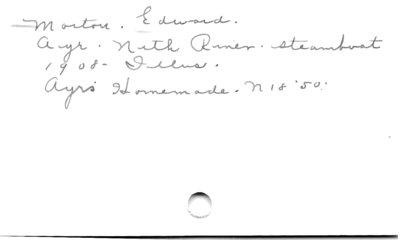 Morton. Edward.
Ayr. Nith River. steamboat
1908 - Illus.
Ayr's Homemade. N 18 '50.